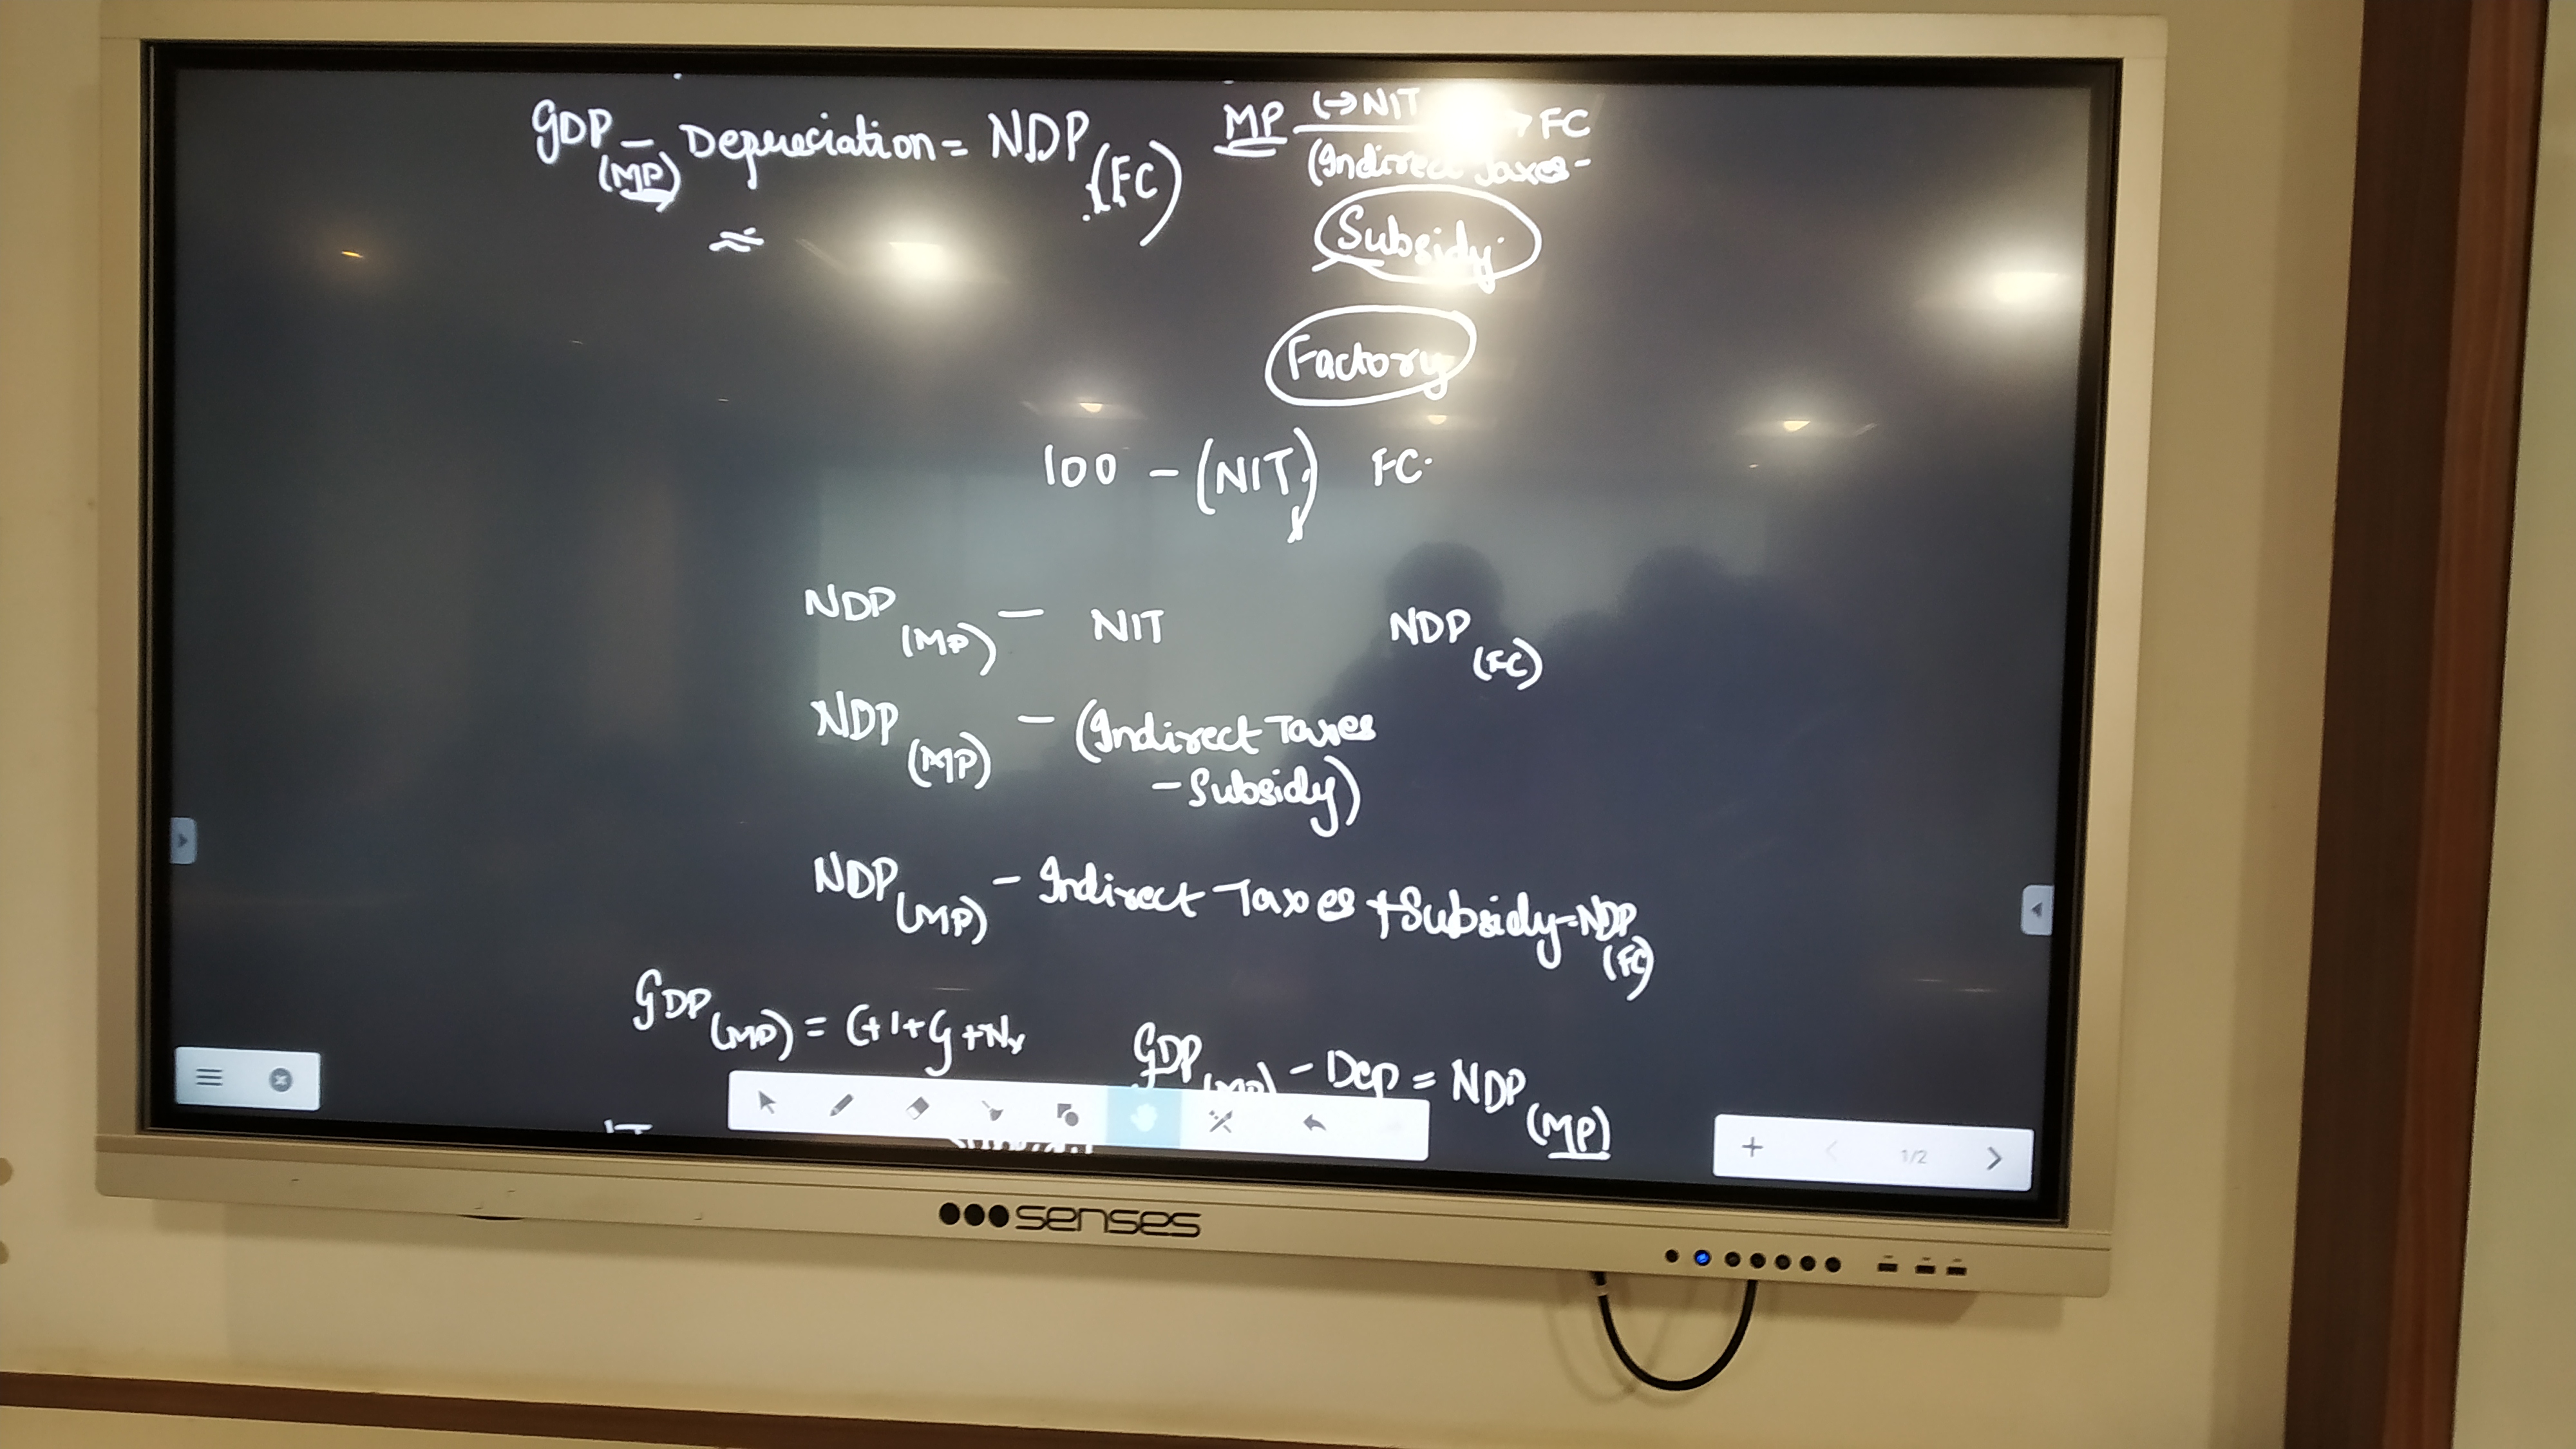 GDP(MP) - Depreciation = NDP(FC)
MP (-) NIT → FC
(Indirect Taxes -
Subsidy
Factory
100 - (NIT) FC
NDP(MP) - NIT NDP(FC)
NDP(MP) - (Indirect Taxes
- Subsidy)
NDP(MP) - Indirect Taxes + Subsidy = NDP(FC)
GDP(MP) = C+I+G+Nx
GDP(MP) - Dep = NDP(MP)
1/2
senses